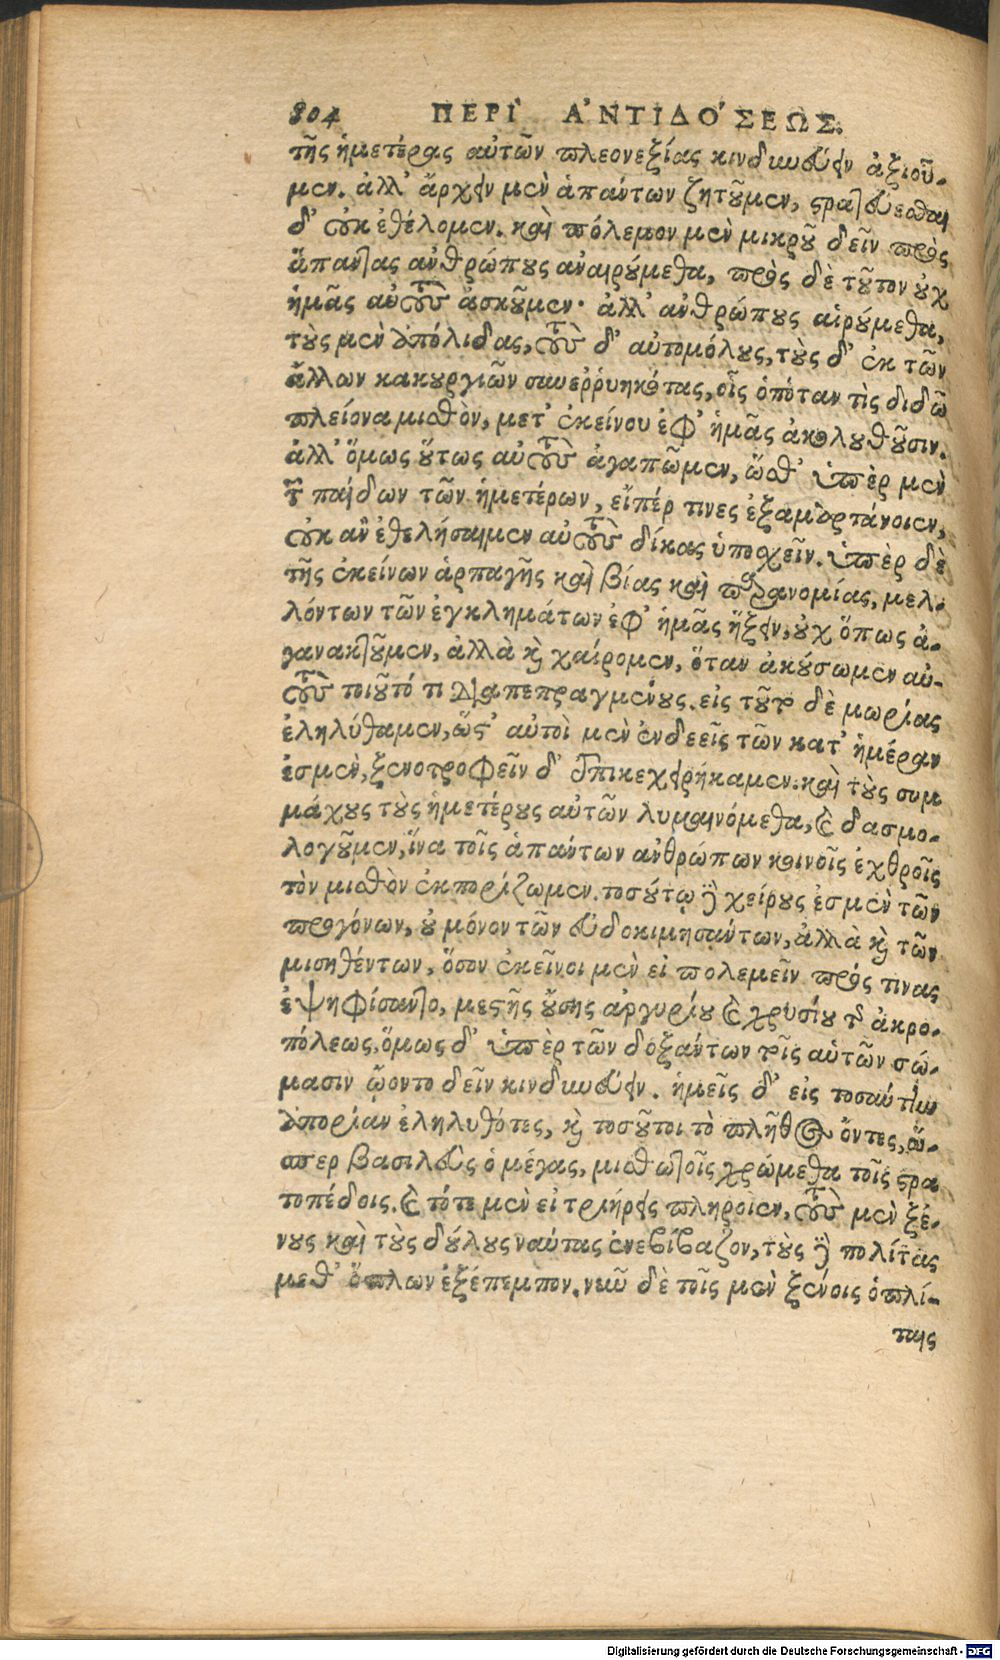 804 ΠΕΡΙ` Α᾿ΝΤΙΔΟ´ΣΕΩΣ.
τῆς ἡμετέρας αὐτῶν πλεονεξίας κινδυνεύειν ἀξιοῦ-
μεν. ἀλλ' ἄρχειν μὲν ἁπάντων ζητοῦμεν, στρατεύεσθαι
δ' οὐκ ἐθέλομεν. καὶ πόλεμον μὲν μικροῦ δεῖν πρὸς
ἅπαντας ἀνθρώπους ἀναιρούμεθα, πρὸς δὲ τοῦτον οὐχ
ἡμᾶς αὐτοὺς ἀσκοῦμεν· ἀλλ' ἀνθρώπους αἱρούμεθα,
τοὺς μὲν ἀπόλιδας, τοὺς δ' αὐτομόλους, τοὺς δ' ἐκ τῶν
ἄλλων κακουργιῶν συνεῤῥυηκότας, οἷς ὁπόταν τὶς διδῶ
πλείονα μισθὸν, μετ' ἐκείνου ἐφ' ἡμᾶς ἀκολουθοῦσιν.
ἀλλ' ὅμως οὕτως αὐτοὺς ἀγαπῶμεν, ὥσθ' ὑπὲρ μὲν
τῶν παίδων τῶν ἡμετέρων, εἴπέρ τινες ἐξαμαρτάνοιεν,
οὐκ ἂν ἐθελήσαιμεν αὐτοὺς δίκας ὑποσχεῖν. ὑπὲρ δὲ
τῆς ἐκείνων ἁρπαγῆς καὶ βίας καὶ παρανομίας, μελ-
λόντων τῶν ἐγκλημάτων ἐφ' ἡμᾶς ἥξειν, οὐχ ὅπως ἀ-
γανακτοῦμεν, ἀλλὰ καὶ χαίρομεν, ὅταν ἀκούσωμεν αὐ-
τοὺς τοιοῦτό τι διαπεπραγμένους. εἰς τοῦτο δὲ μωρίας
ἐληλύθαμεν, ὥστ' αὐτοὶ μὲν ἐνδεεῖς τῶν κατ' ἡμέραν
ἐσμὲν, ξενοτροφεῖν δ' ἐπικεχειρήκαμεν. καὶ τοὺς συμ
μάχους τοὺς ἡμετέρους αὐτῶν λυμαινόμεθα, καὶ δασμο-
λογοῦμεν, ἵνα τοῖς ἁπάντων ἀνθρώπων κοινοῖς ἐχθροῖς
τὸν μισθὸν ἐκπορίζωμεν. τοσούτῳ δὲ χείρους ἐσμὲν τῶν
προγόνων, οὐ μόνον τῶν εὐδοκιμησάντων, ἀλλὰ καὶ τῶν
μισηθέντων, ὅσον ἐκεῖνοι μὲν εἰ πολεμεῖν πρός τινας
ἐψηφίσαντο, μεστῆς οὔσης ἀργυρίου καὶ χρυσίου τῆς ἀκρο-
πόλεως, ὅμως δ' ὑπὲρ τῶν δοξάντων τοῖς αὑτῶν σώ-
μασιν ᾤοντο δεῖν κινδυνεύειν. ἡμεῖς δ' εἰς τοσαύτην
ἀπορίαν ἐληλυθότες, καὶ τοσοῦτοι τὸ πλῆθος ὄντες, ὥ-
σπερ βασιλεὺς ὁ μέγας, μισθωτοῖς χρώμεθα τοῖς στρα
τοπέδοις. καὶ τότε μὲν εἰ τριήρεις πληροῖεν, τοὺς μὲν ξέ-
νους καὶ τοὺς δούλους ναύτας ἐνεβίβαζον, τοὺς δὲ πολίτας
μεθ' ὅπλων ἐξέπεμπον. νῦν δὲ τοῖς μὲν ξένοις ὁπλί-
ταις
Digitalisierung gefördert durch die Deutsche Forschungsgemeinschaft - DFG